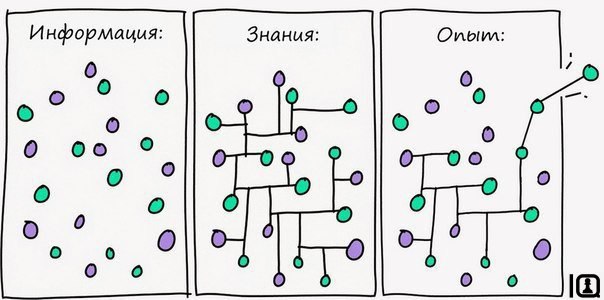 Информация:
Знания:
Опыт: